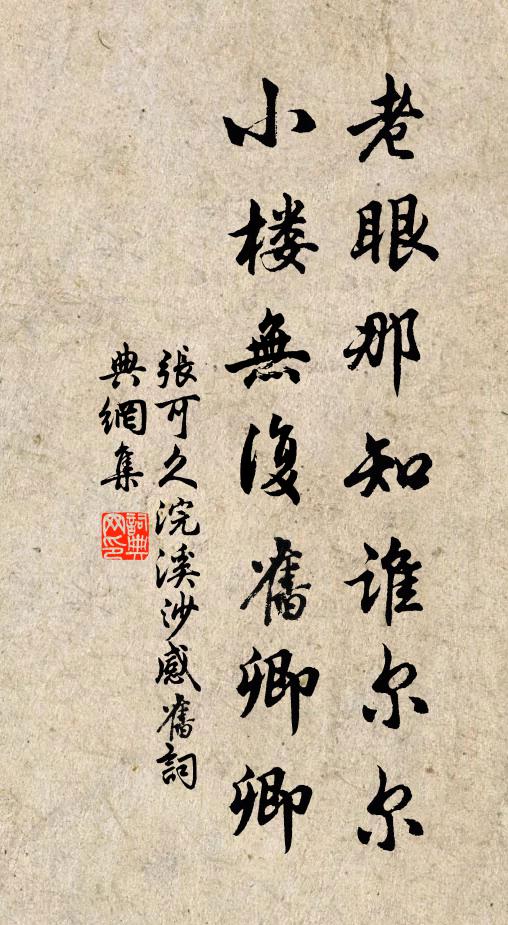 老眼那知誰尔尔
小楼無復舊卿卿
張可久浣溪沙感舊詞
典網集
詞典网印